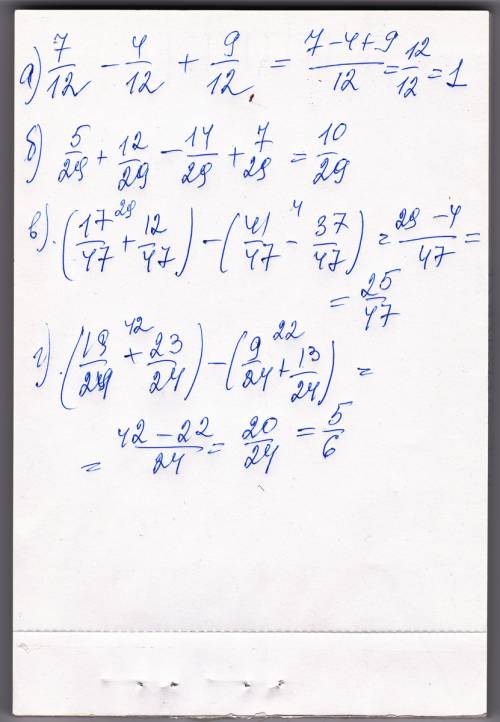 а) 7/12 − 4/12 + 9/12 = (7−4+9)/12 = 12/12 = 1
б) 5/29 + 12/29 − 14/29 + 7/29 = 10/29
в) (17/47 + 12/47) − (41/47 − 37/47) = (29−4)/47 =
29 4
= 25/47
г) (19/24 + 23/24) − (9/24 + 13/24) =
42 22
= (42−22)/24 = 20/24 = 5/6